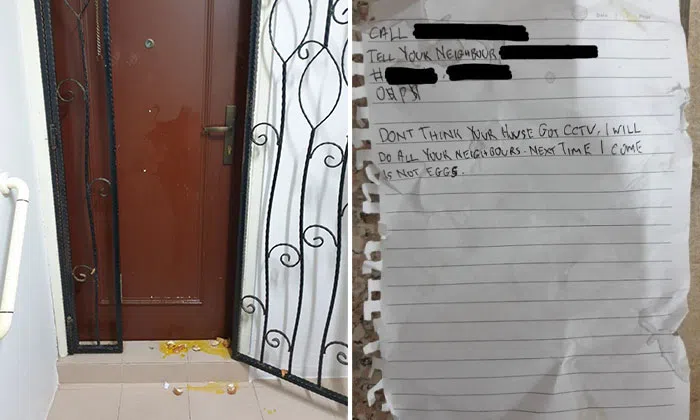 CALL
TELL YOUR NEIGHBOUR
#
O$P$
DONT THINK YOUR HOUSE GOT CCTV. I WILL
DO ALL YOUR NEIGHBOURS. NEXT TIME I COME
IS NOT EGGS.